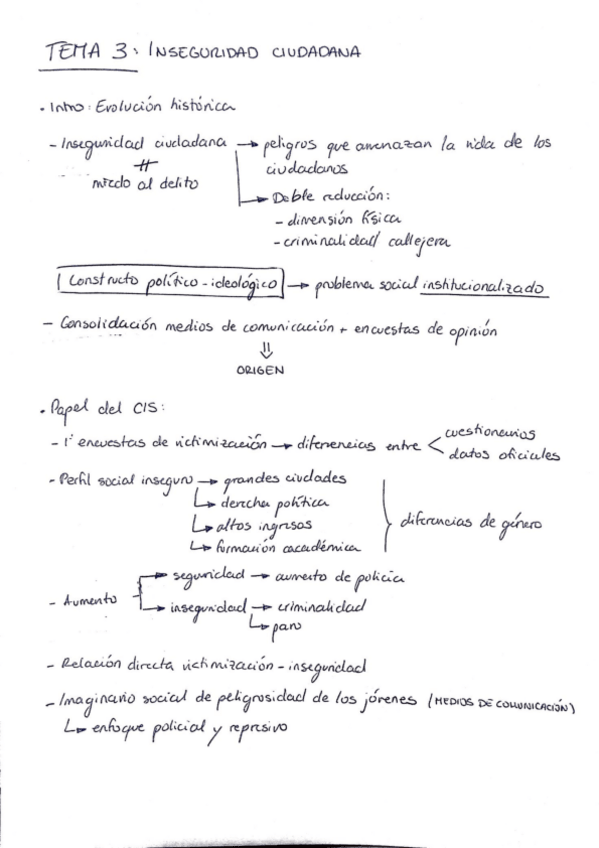 TEMA 3: INSEGURIDAD CIUDADANA
· Intro: Evolución histórica
- Inseguridad ciudadana → peligros que amenazan la vida de los
ciudadanos
miedo al delito
↳ Doble reducción:
- dimensión física
- criminalidad callejera
Constructo político-ideológico → problema social institucionalizado
- Consolidación medios de comunicación + encuestas de opinión
⇓
ORIGEN
· Papel del CIS:
- 1ª encuestas de victimización → diferencias entre < cuestionarios
datos oficiales
- Perfil social inseguro → grandes ciudades
↳ derecha política
↳ altos ingresos
↳ formación académica
} diferencias de género
- Aumento → seguridad → aumento de policía
→ inseguridad → criminalidad
↳ paro
- Relación directa victimización - inseguridad
- Imaginario social de peligrosidad de los jóvenes (MEDIOS DE COMUNICACIÓN)
↳ enfoque policial y represivo